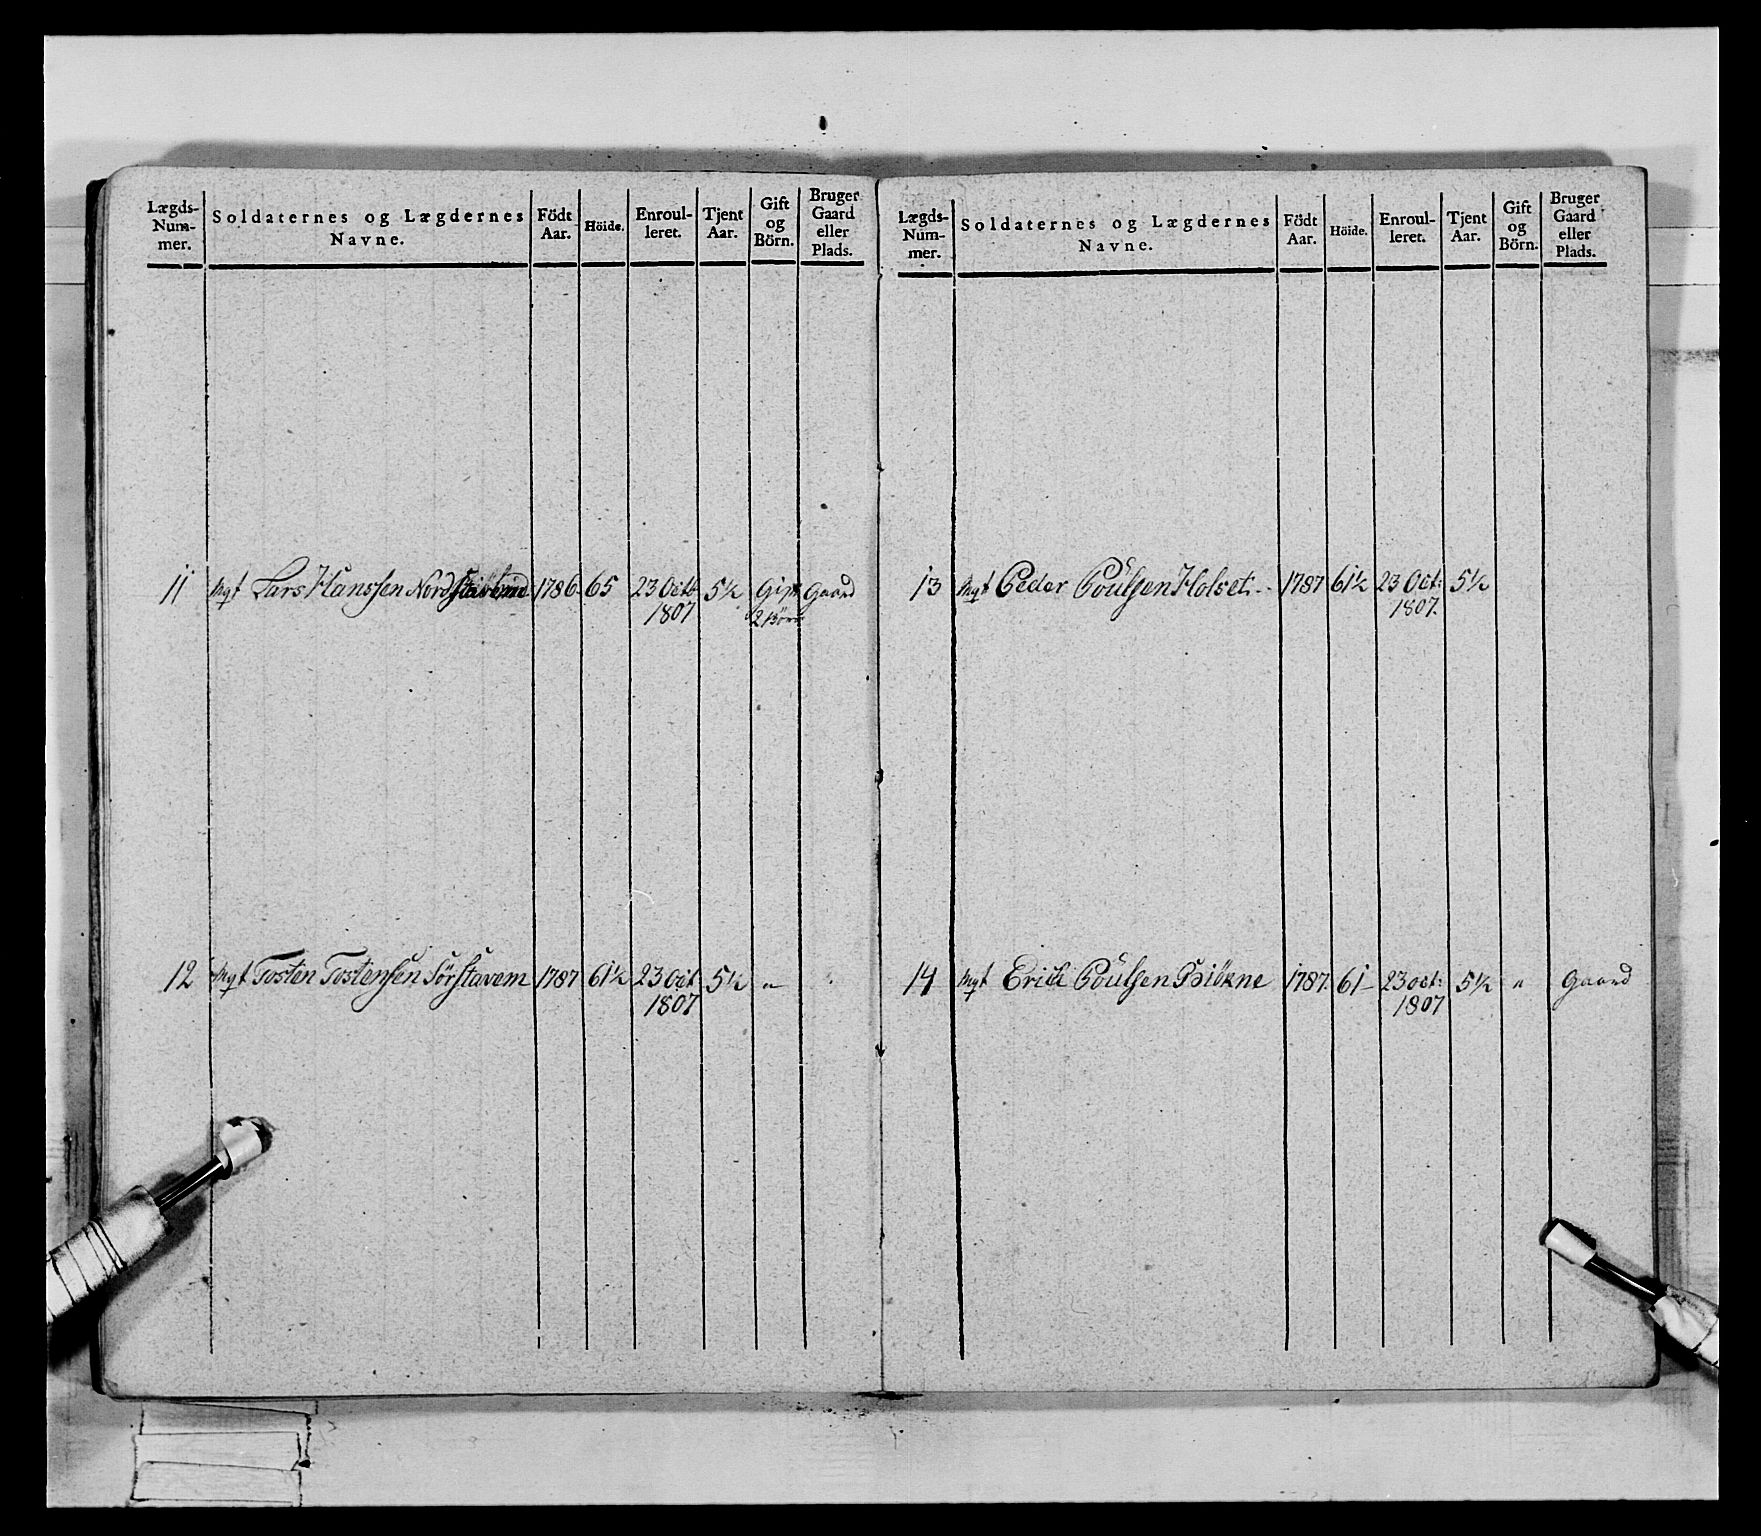 Lægds- Num- mer. | Soldaternes og Lægdernes Navne. | Födt Aar. | Höide. | Enroul- leret. | Tjent Aar. | Gift og Börn. | Bruger Gaard eller Plads.
11 Mqt Lars Hanssen Nord 1786 65 23 Octb 5½ Gift Gaard
1807 2 Börn
12 Mqt Tosten Tostensen Sörstavem 1787 61½ 23 Oct 5½ "
1807
Lægds- Num- mer. | Soldaternes og Lægdernes Navne. | Födt Aar. | Höide. | Enroul- leret. | Tjent Aar. | Gift og Börn. | Bruger Gaard eller Plads.
13 Mqt Peder Poulsen Holset 1787 61½ 23 Oct: 5½
1807.
14 Mqt Erich Poulsen Biökne 1787. 61 23 oct: 5½ " Gaard
1807